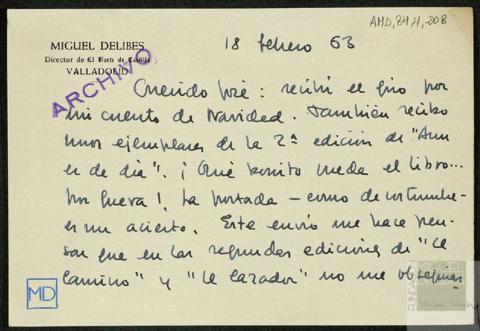 AMD,84,4,208
MIGUEL DELIBES
Director de El Norte de Castilla
VALLADOLID
ARCHIVO
18 febrero 63
Querido José: recibí el giro por
mi cuento de Navidad. También recibo
unos ejemplares de la 2ª edición de "Aun
es de día". ¡Qué bonito queda el libro...
por fuera! La portada – como de costumbre –
es un acierto. Este envío me hace pen-
sar que en las segundas ediciones de "El
Camino" y "El Cazador" no me obsequias
MD
FUNDACIÓN
MIGUEL DELIBES